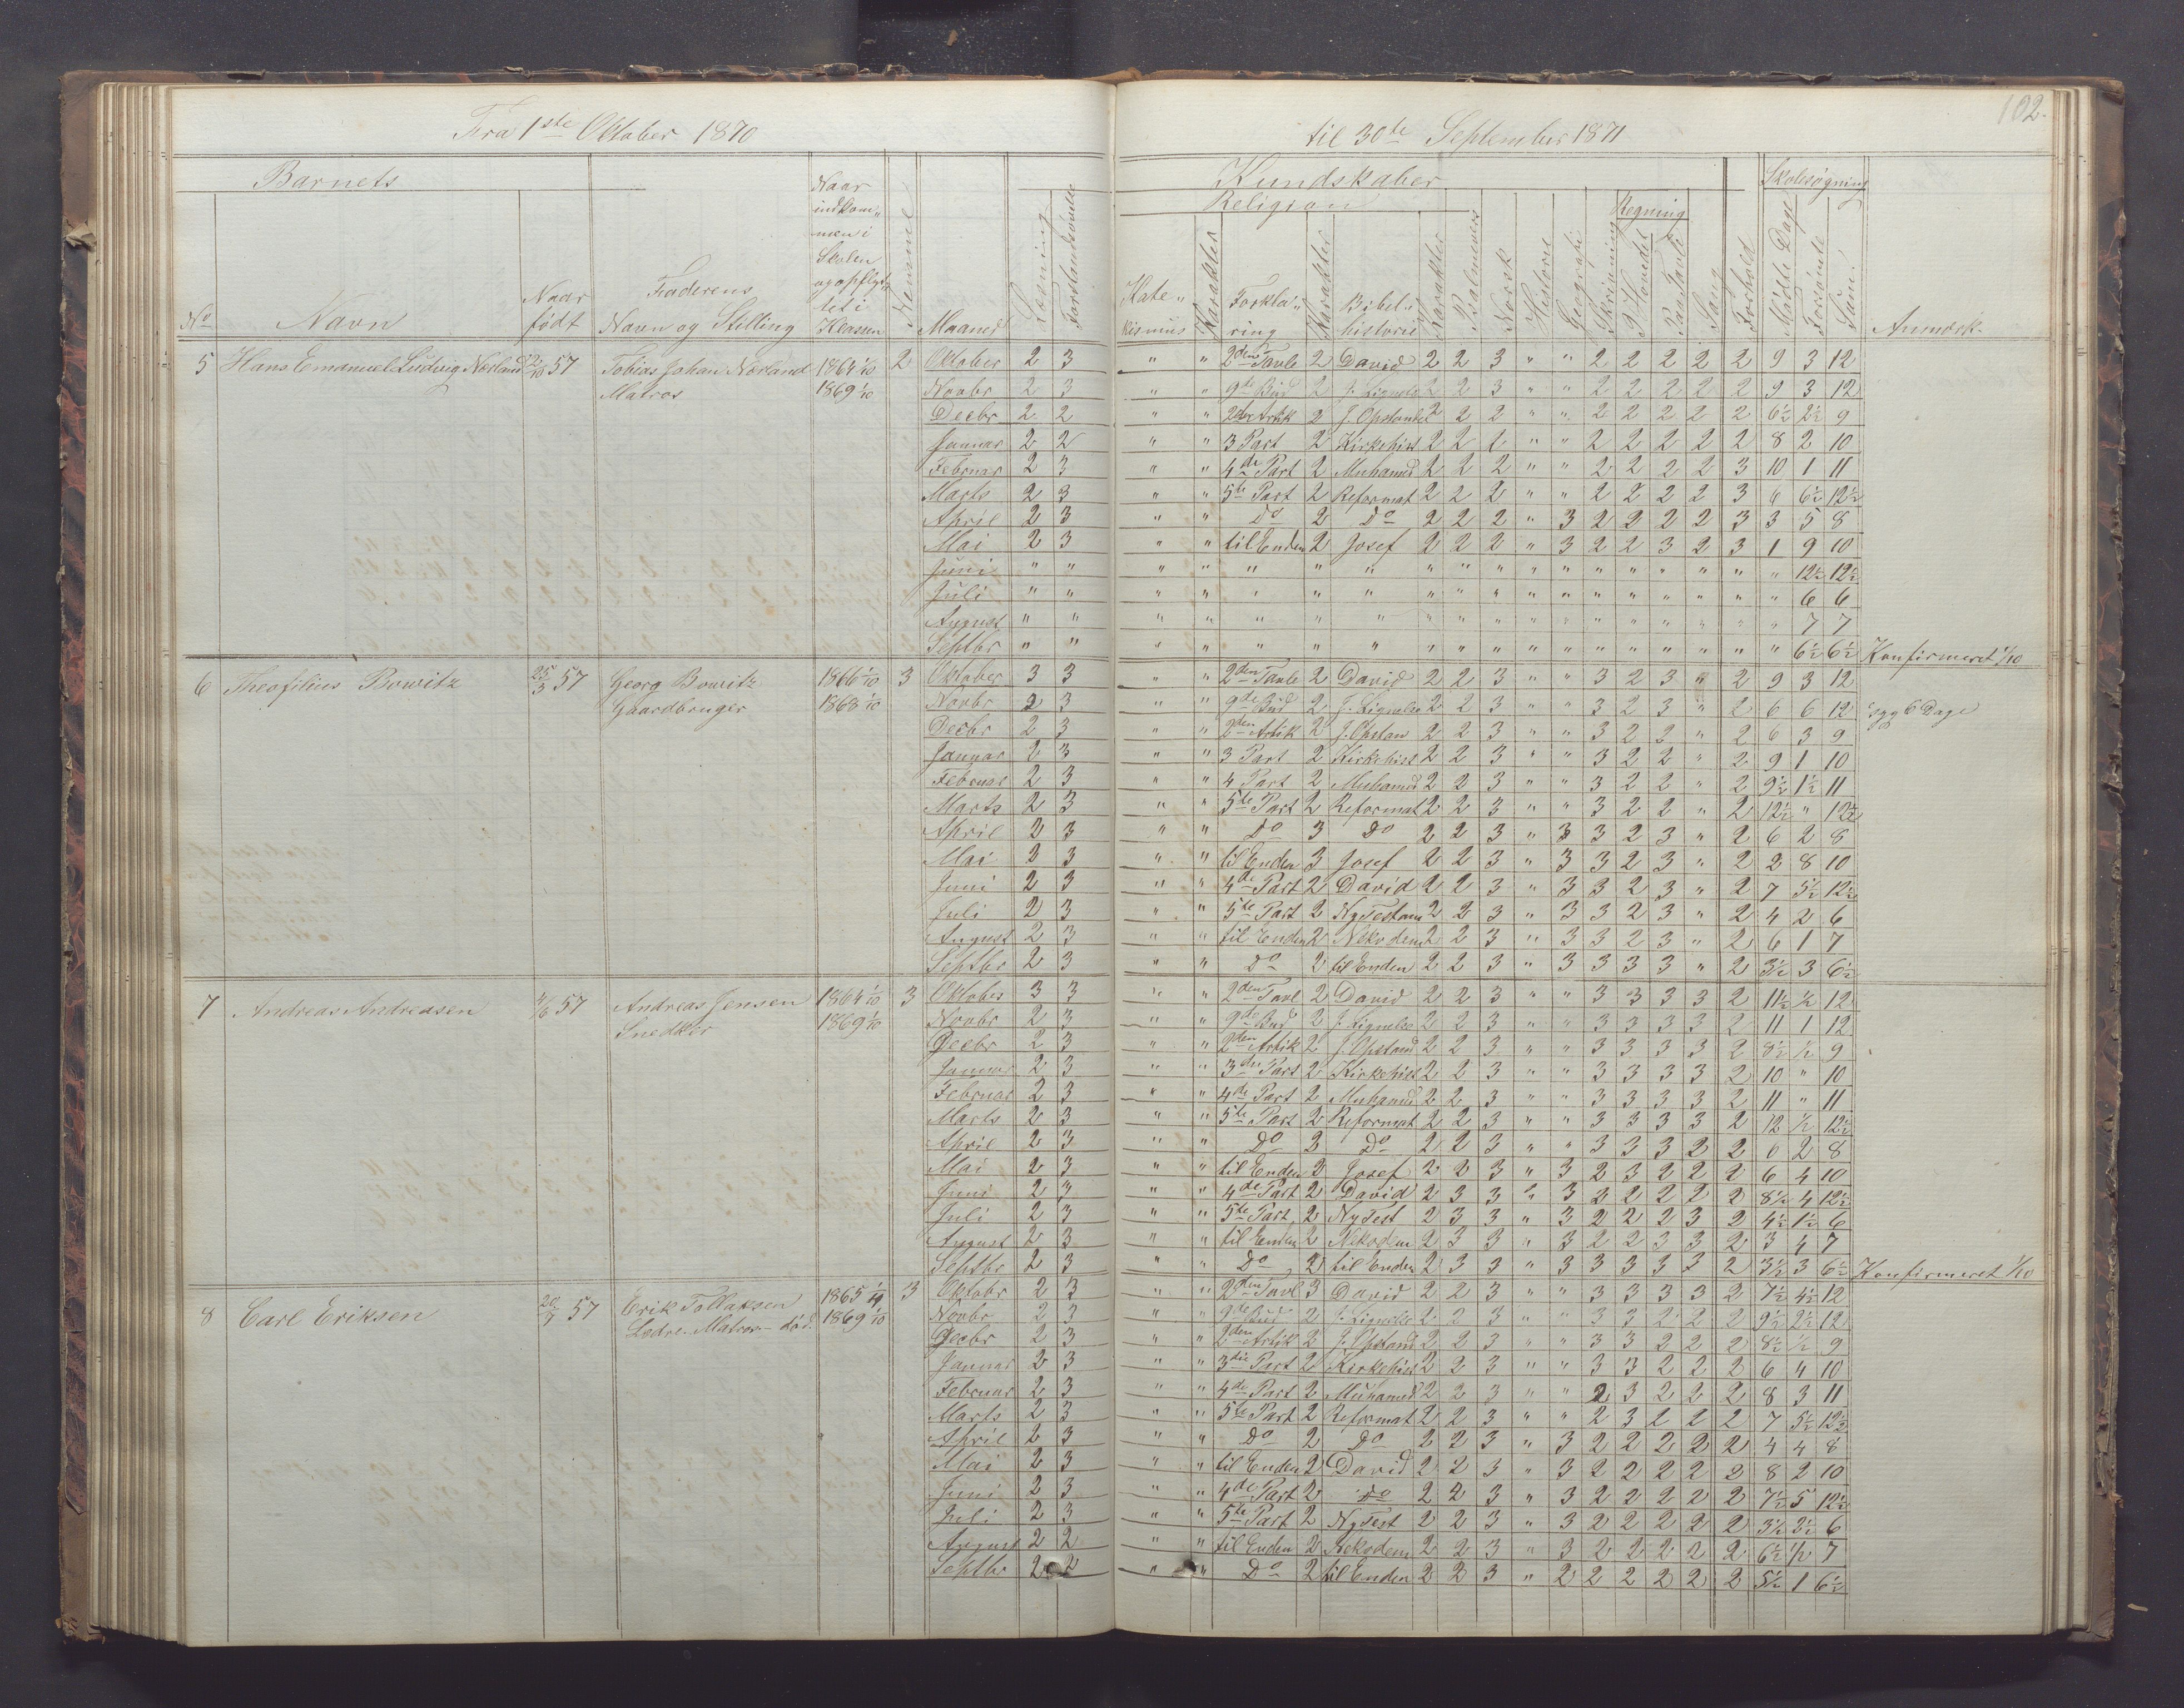 Fra 1ste Oktober 1870 til 30te September 1871 102.
Barnets Kundskaber Skolesøgning
Religion Regning
No Navn Naar født Faderens Navn og Stilling Naar indkommen i Skolen og opflyttet i Klassen Nemme Maaned Læsning Forstandsøvelse Katekismus Karakter Forklaring Karakter Bibelhistorie Karakter Salmevers Norsk Historie Geografi Skrivning P. Hovedet Paa Tavle Sang Forhold Mødte Dage Forsømte Sum Anmærk.
5 Hans Emanuel Ludvig Nærland 22/10 57 Tobias Johan Nærland 1864 1/10 2 Oktober 2 3 " " 2den Tavle 2 David 2 2 3 " " 2 2 2 2 2 9 3 12
Matros 1869 1/10 Novbr 2 3 " " 9de Bud 2 J. Lignelse 2 2 3 " " 2 2 2 2 2 9 3 12
Decbr 2 2 " " 2den Artik 2 J. Opstandel 2 2 2 " " 2 2 2 2 2 6½ 2½ 9
Januar 2 2 " " 3 Part 2 Kirkehist 2 2 2 " " 2 2 2 2 2 8 2 10
Februar 2 3 " " 4de Part 2 Muhamed 2 2 2 " " 2 2 2 2 3 10 1 11
Marts 2 3 " " 5te Part 2 Reformat 2 2 2 " " 2 2 2 2 3 6 6½ 12½
April 2 3 " " Do 2 Do 2 2 2 " 3 2 2 2 2 3 3 5 8
Mai 2 3 " " til Enden 2 Josef 2 2 2 " 3 2 2 3 2 3 1 9 10
Juni " " " " " " " " " " " " " " " " " " 12½ 12½
Juli " " " " " " " " " " " " " " " " " " 6 6
August " " " " " " " " " " " " " " " " " " 7 7
Septbr " " " " " " " " " " " " " " " " " " 6½ 6½ Konfirmeret 1/10
6 Theofilius Bowitz 25/3 57 Georg Bowitz 1866 1/10 3 Oktober 3 3 " " 2den Tavle 2 David 2 2 3 " " 3 2 3 " 2 9 3 12
Gaardbruger 1868 1/10 Novbr 2 3 " " 9de Bud 2 J. Lignelse 2 2 3 " " 3 2 3 " 2 6 6 12 syg 6 Dage
Decbr 2 3 " " 2den Artik 2 J. Opstan 2 2 3 " " 3 2 2 " 2 6 3 9
Januar 2 3 " " 3 Part 2 Kirkehist 2 2 3 " " 3 2 2 " 2 9 1 10
Februar 2 3 " " 4 Part 2 Muhamed 2 2 3 " " 3 2 2 " 2 9½ 1½ 11
Marts 2 3 " " 5te Part 2 Reformat 2 2 3 " " 3 2 2 " 2 12½ " 12½
April 2 3 " " Do 3 Do 2 2 3 " 3 3 2 3 " 2 6 2 8
Mai 2 3 " " til Enden 3 Josef 2 2 3 " 3 3 2 3 " 2 2 8 10
Juni 2 3 " " 4de Part 2 David 2 2 3 " 3 3 2 3 " 2 7 5½ 12½
Juli 2 3 " " 5te Part 2 Ny Testam 2 2 3 " 3 3 2 3 " 2 4 2 6
August 2 3 " " til Enden 2 Nekodem 2 2 3 " 3 3 2 3 " 2 6 1 7
Septbr 2 3 " " Do 2 til Enden 2 2 3 " 3 3 3 3 " 2 3½ 3 6½
7 Andreas Andreasen 4/6 57 Andreas Jensen 1864 1/10 3 Oktober 3 3 " " 2den Tavl 2 David 2 2 3 " " 3 3 3 3 2 11½ ½ 12
Snedker 1869 1/10 Novbr 2 3 " " 9de Bud 2 J. Lignelse 2 2 3 " " 3 3 3 3 2 11 1 12
Decbr 2 3 " " 2den Artik 2 J. Opstand 2 2 3 " " 3 3 3 3 2 8½ ½ 9
Januar 2 3 " " 3die Part 2 Kirkehist 2 2 3 " " 3 3 3 3 2 10 " 10
Februar 2 3 " " 4de Part 2 Muhamed 2 2 3 " " 3 3 3 3 2 11 " 11
Marts 2 3 " " 5te Part 2 Reformat 2 2 3 " " 3 3 3 3 2 12 ½ 12½
April 2 3 " " Do 2 Do 2 2 3 " " 3 3 3 2 2 6 2 8
Mai 2 3 " " til Enden 2 Josef 2 2 3 " 3 2 3 2 2 2 6 4 10
Juni 2 3 " " 4de Part 2 David 2 3 3 " 3 3 2 2 2 2 8½ 4 12½
Juli 2 3 " " 5te Part 2 Ny Test 2 3 3 " 3 2 2 2 3 2 4½ 1½ 6
August 2 3 " " til Enden 2 Nekodem 2 3 3 " 3 2 2 3 3 2 3 4 7
Septbr 2 3 " " Do 2 til Enden 2 3 3 " 3 3 3 3 3 2 3½ 3 6½ Konfirmeret 1/10
8 Carl Eriksen 20/7 57 Erik Tollaksen 1865 3 Oktobr 2 3 " " 2den Tavl 3 David 2 2 3 " " 3 3 3 3 2 7½ 4½ 12
Lødre. Matros - død. 1869 1/10 Novbr 2 3 " " 9de Bud 2 J. Lignelse 2 2 3 " " 3 3 2 2 2 9½ 2½ 12
Decbr 2 3 " " 2den Artik 2 J. Opstand 2 2 3 " " 3 3 2 2 2 8½ ½ 9
Januar 2 3 " " 3die Part 2 Kirkehist 2 2 3 " " 3 3 2 2 2 6 4 10
Februar 2 3 " " 4de Part 2 Muhamed 2 2 3 " " 2 3 2 2 2 8 3 11
Marts 2 3 " " 5te Part 2 Reformat 2 2 3 " " 2 3 2 2 2 7 5½ 12½
April 2 3 " " Do 2 Do 2 2 3 " 3 2 2 2 2 2 4 4 8
Mai 2 3 " " til Enden 2 David 2 2 3 " 3 2 2 2 2 2 8 2 10
Juni 2 3 " " 4de Part 2 Do 2 2 3 " 3 2 2 2 2 2 7½ 5 12½
Juli 2 3 " " 5te Part 2 Ny Test 2 2 3 " 3 2 2 2 2 2 3½ 2½ 6
August 2 2 " " til Enden 2 Nekodem 2 2 3 " 3 2 2 2 2 2 6½ ½ 7
Septbr 2 2 " " Do 2 til Enden 2 2 3 " 2 2 2 2 2 2 5½ 1 6½